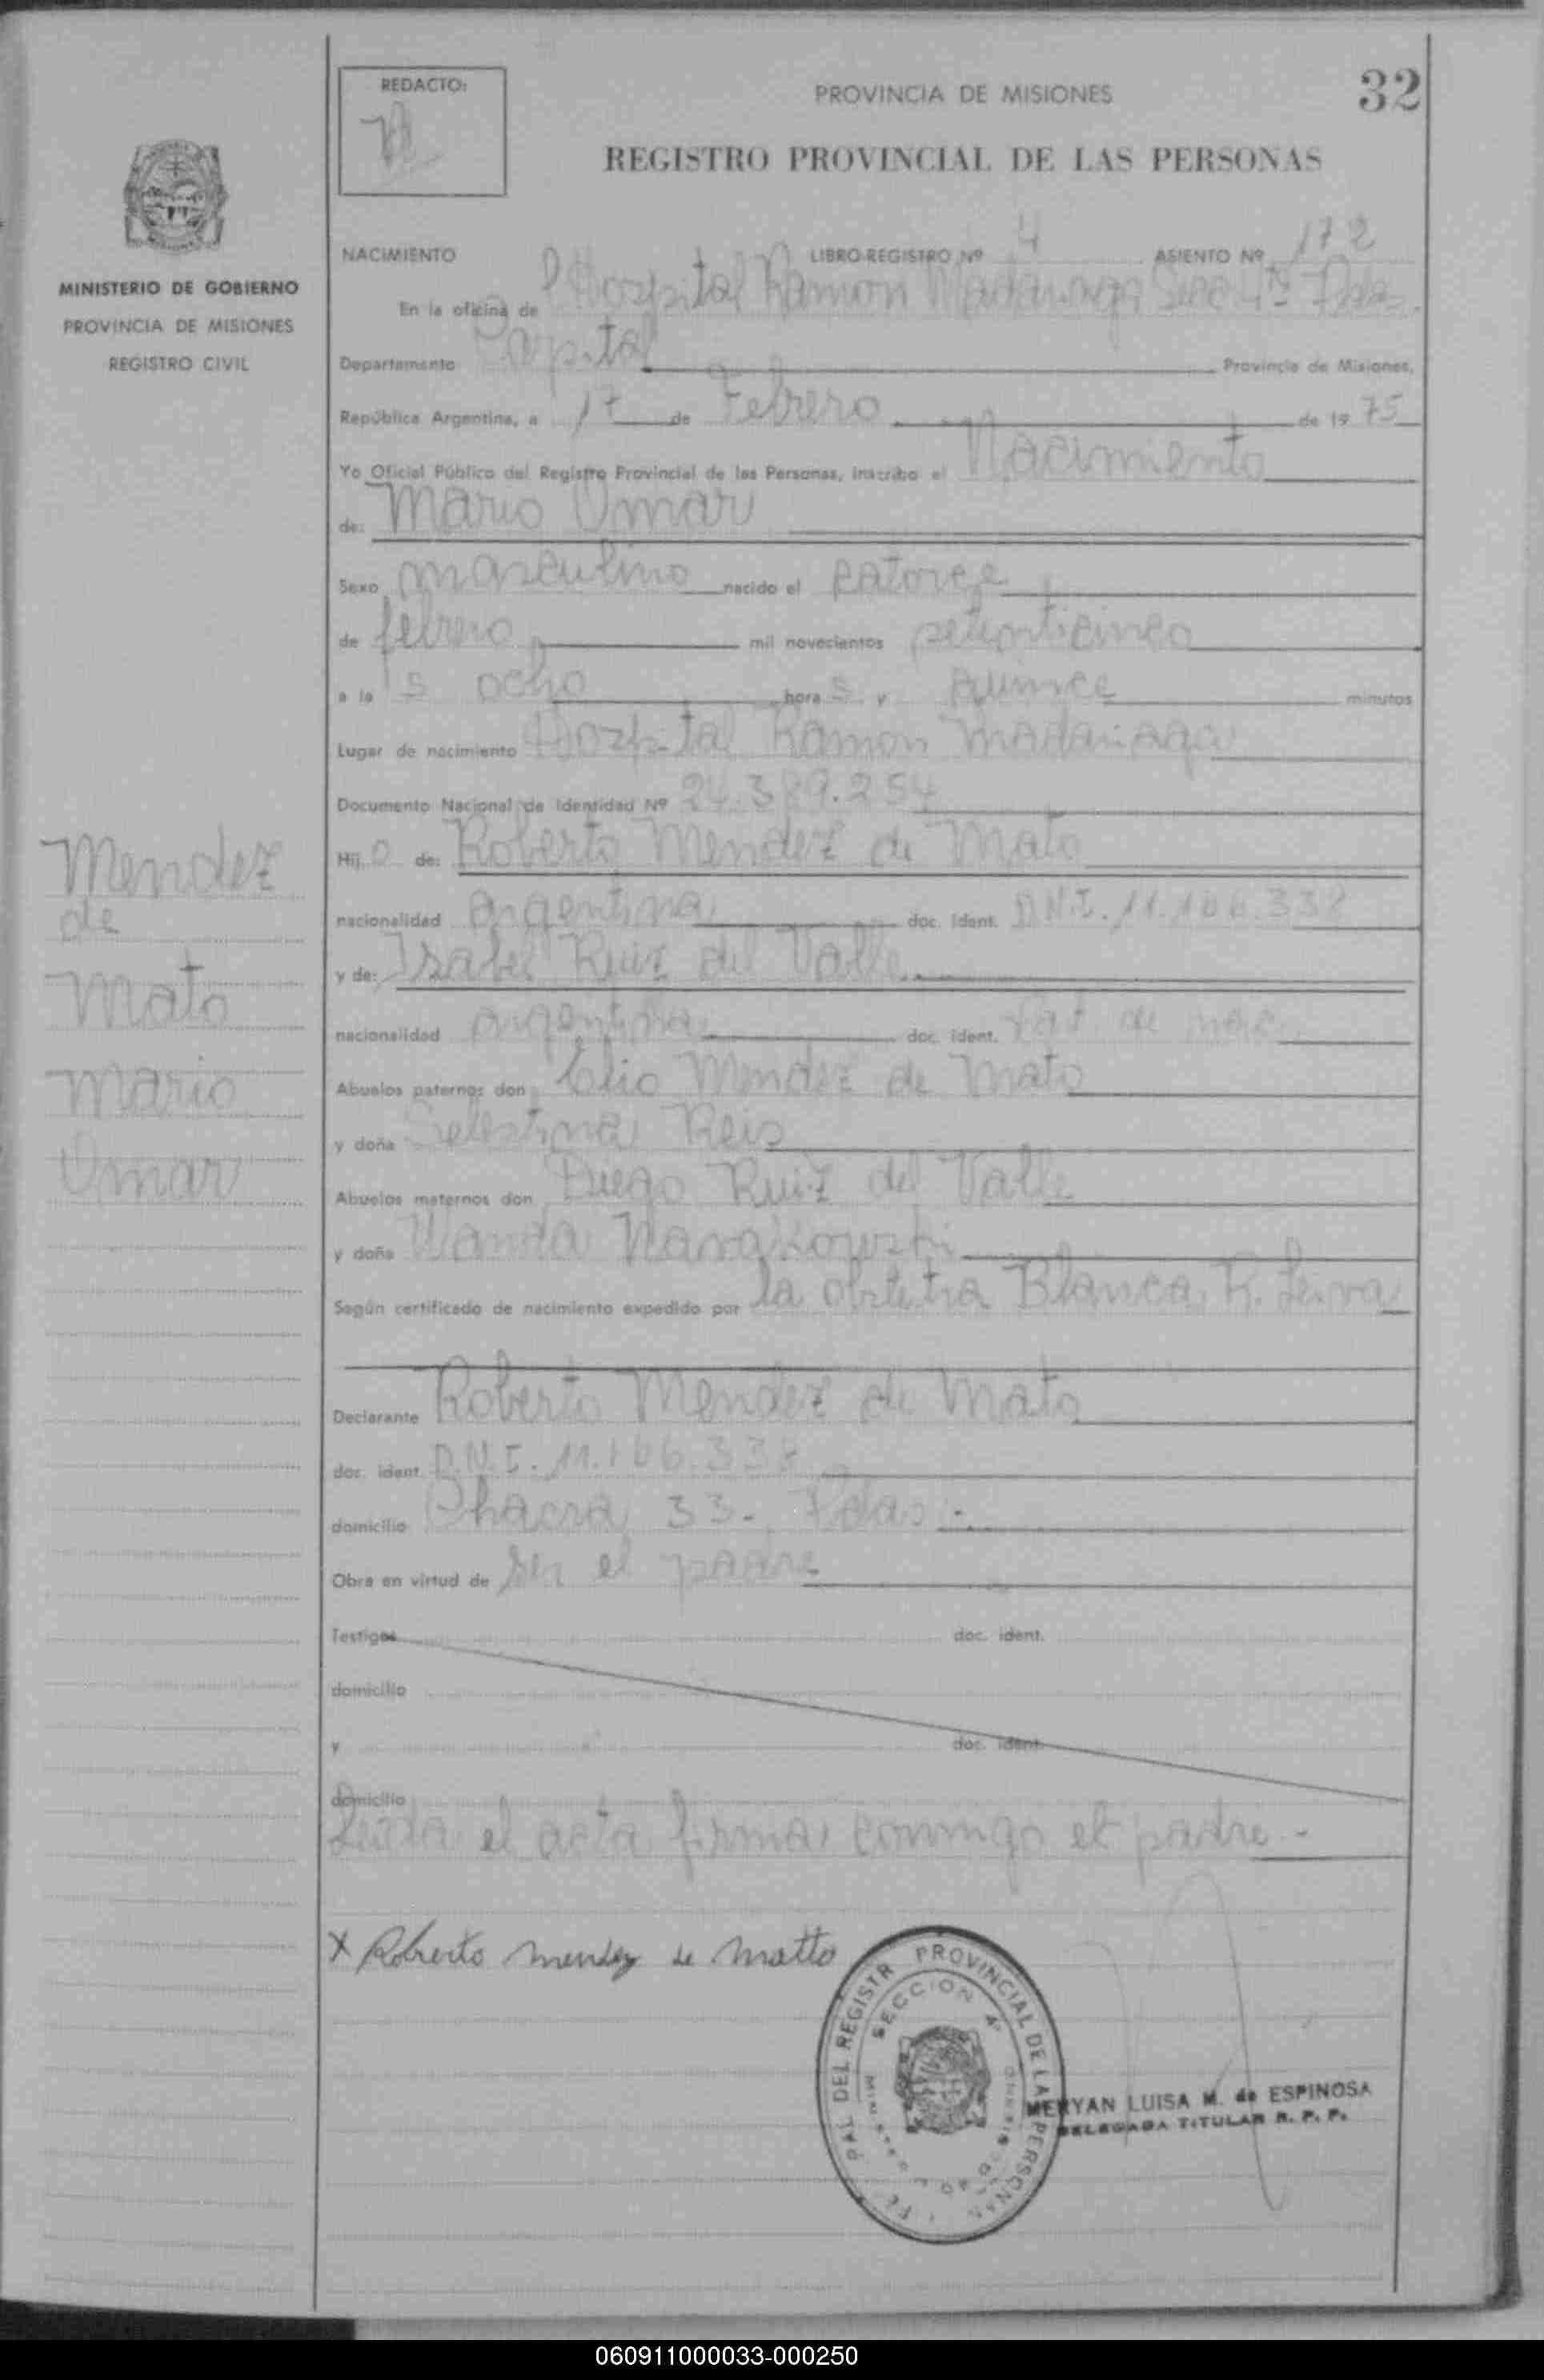 32
REDACTO:
PROVINCIA DE MISIONES
REGISTRO PROVINCIAL DE LAS PERSONAS
MINISTERIO DE GOBIERNO
PROVINCIA DE MISIONES
REGISTRO CIVIL
NACIMIENTO LIBRO-REGISTRO Nº 4 ASIENTO Nº 172
En la oficina de Hospital Ramon Madariaga Secc 4ta Pdas.
Departamento Capital Provincia de Misiones,
República Argentina, a 17 de Febrero de 1975
Yo Oficial Público del Registro Provincial de las Personas, inscribo el Nacimiento
de: Mario Omar
Sexo masculino nacido el catorce
de febrero mil novecientos setenticinco
a las ocho horas y quince minutos
Lugar de nacimiento Hospital Ramon Madariaga
Documento Nacional de Identidad Nº 24.389.254
Mendez
de
Mato
Mario
Omar
Hijo de: Roberto Mendez de Mato
nacionalidad argentina doc. ident. D.N.I. 11.106.338
y de: Isabel Ruiz del Valle
nacionalidad argentina doc. ident.
Abuelos paternos don Elio Mendez de Mato
y doña Selestina Reis
Abuelos maternos don Diego Ruiz del Valle
y doña Wanda
Según certificado de nacimiento expedido por la obstetra Blanca R. Leiva
Declarante Roberto Mendez de Mato
doc. ident. D.N.I. 11.106.338
domicilio Chacra 33- Pdas.-
Obra en virtud de ser el padre
Testigos doc. ident.
domicilio
y doc. ident.
domicilio
Leida el acta firma conmigo el padre.-
X Roberto mendez de matto
PAL DEL REGISTR PROVINCIAL DE LA PERSONAS
SECCION 4ª
MERYAN LUISA M. de ESPINOSA
DELEGADA TITULAR R. P. P.
060911000033-000250